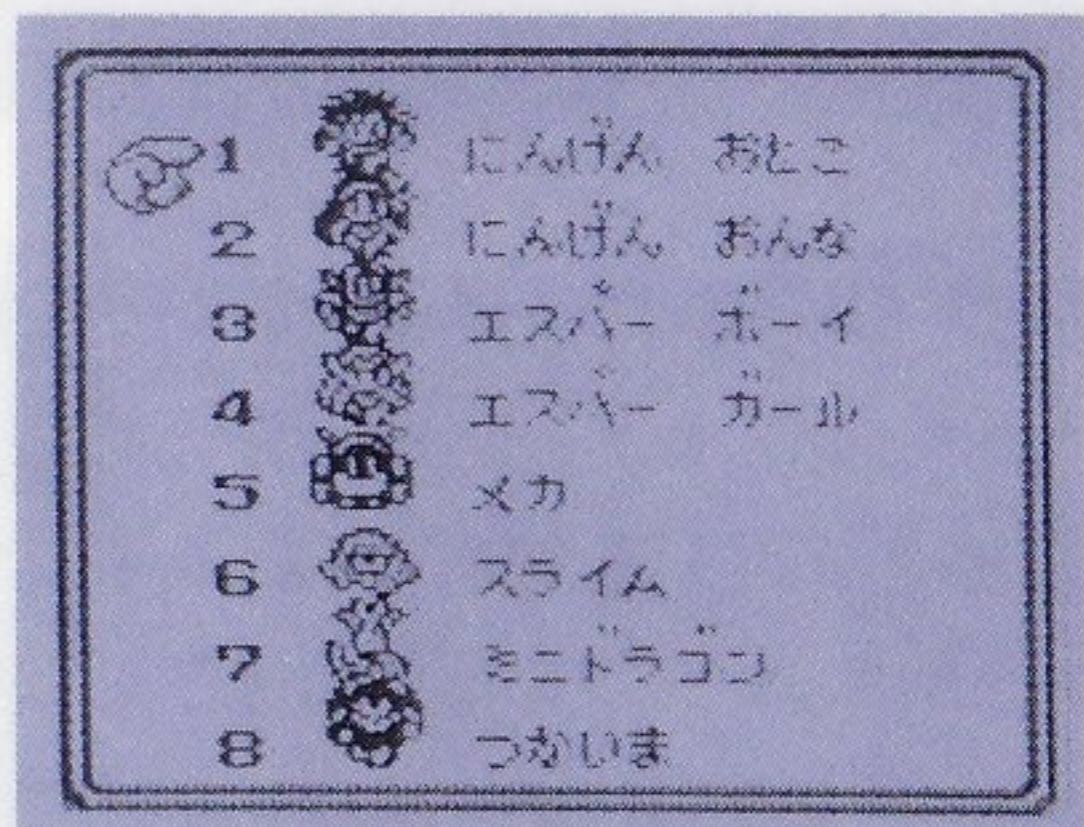 1 にんげん おとこ
2 にんげん おんな
3 エスパー ボーイ
4 エスパー ガール
5 メカ
6 スライム
7 ミニドラゴン
8 つかいま